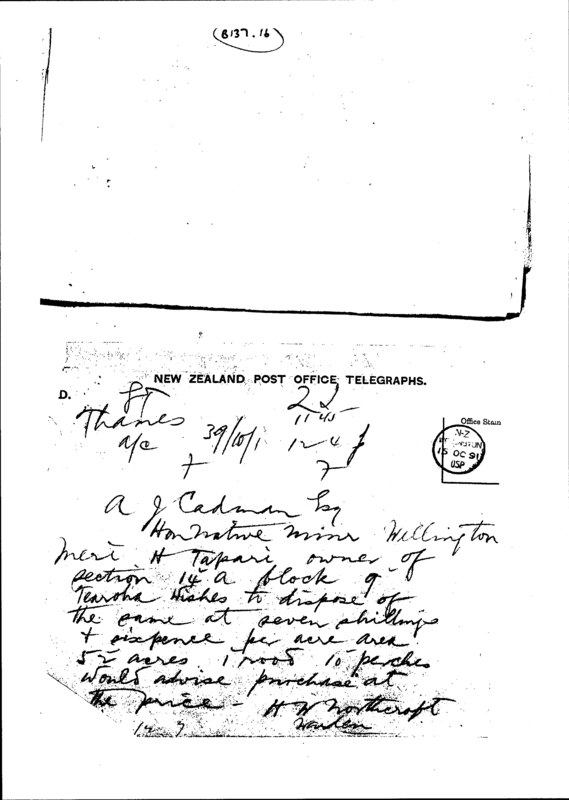 (B137.16)
NEW ZEALAND POST OFFICE TELEGRAPHS.
D.
Thames
11 45
a/c 39/10/1 12-4
Office Stamp
N-Z
15 OC 91
A J Cadman Esq
Hon Native Minr Wellington
Meri H Tapari owner of
section 14 a block 9
Tearoha wishes to dispose of
the same at seven shillings
+ sixpence per acre area
52 acres 1 rood 10 perches
would advise purchase at
the price - H W Northcroft
Warden